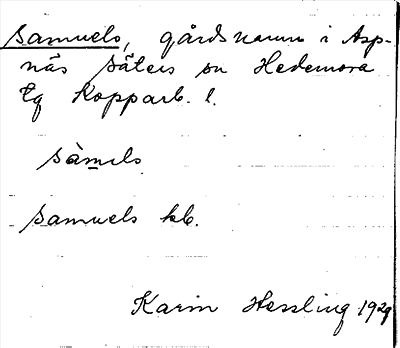 Samuels, gårdsnamn i Asp-
näs Säters sn Hedemora
tg Kopparb. l.
sàmɩls
Samuels kb.
Karin Hessling 1929